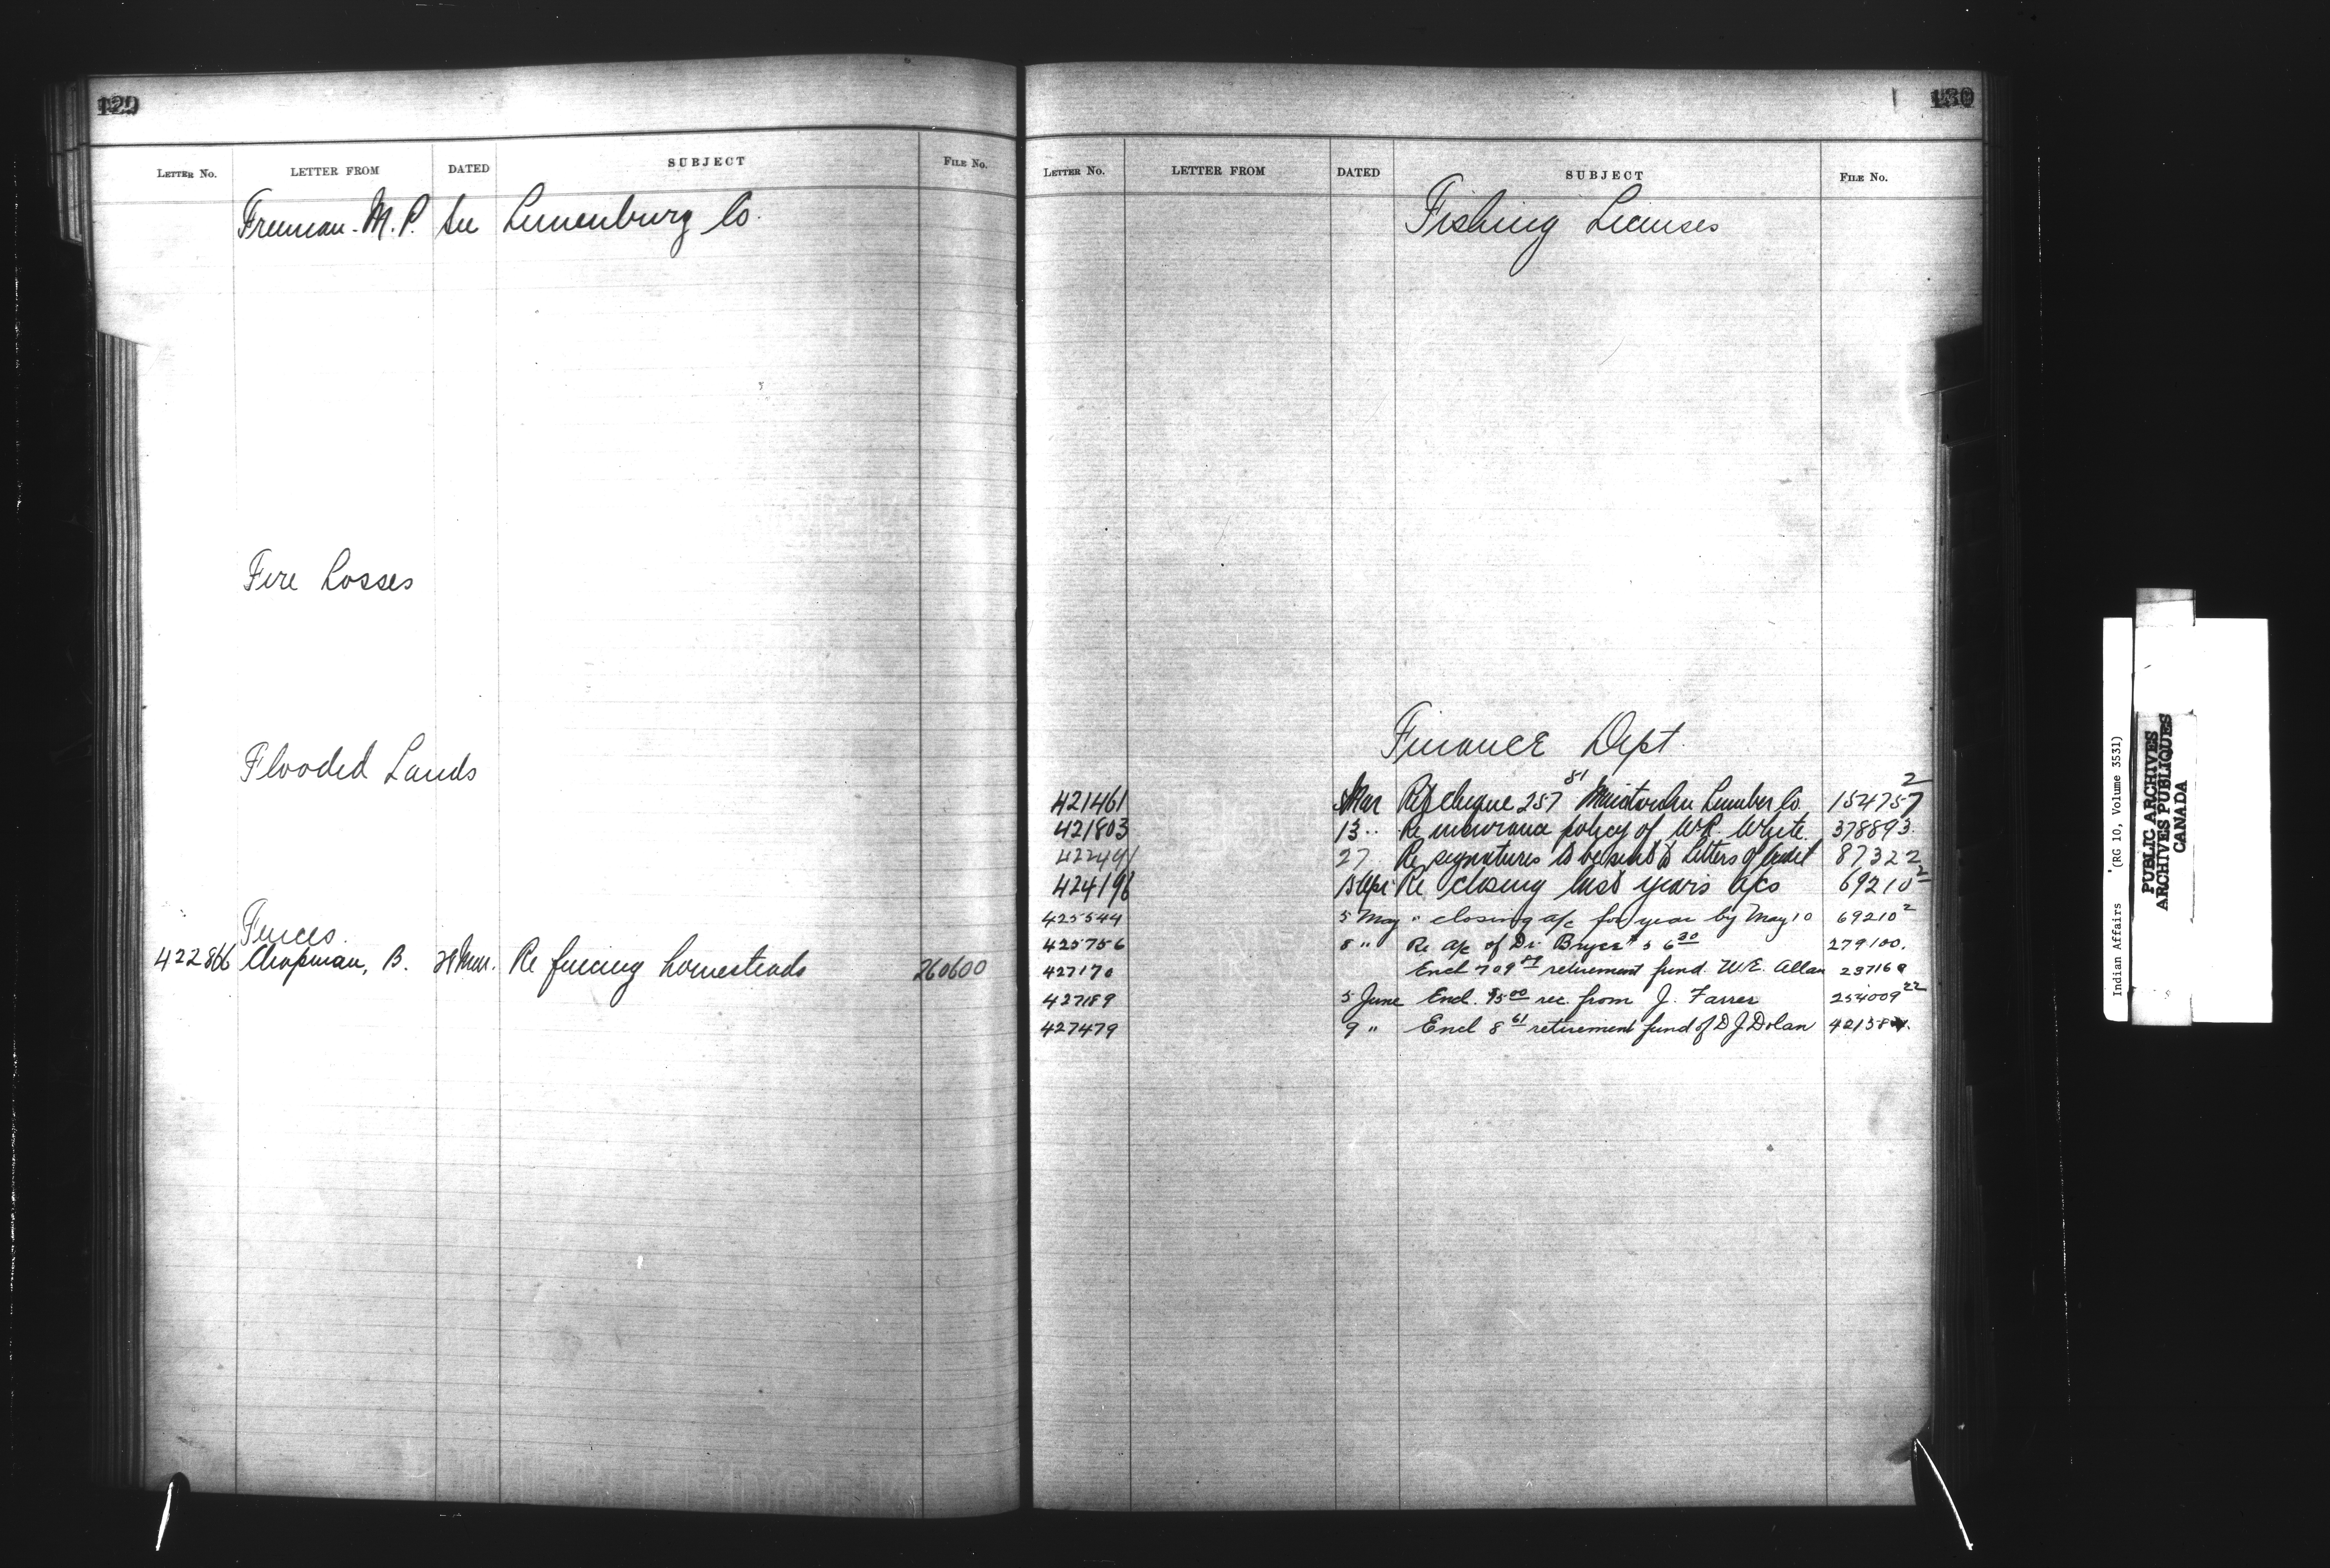 129
LETTER No. LETTER FROM DATED SUBJECT FILE No.
Freeman - M. P. See Lunenburg Co.
Fire Losses
Flooded Lands
Fences.
422866 Chapman, B. 28 Mar. Re fencing homesteads 260600
130
LETTER No. LETTER FROM DATED SUBJECT FILE No.
Fishing Licenses
Finance Dept.
421461 Mar cheque 257 81 Lumber Co. 154757 2
421803 13 " Re insurance policy of W.R. White 378893.
422491 27 Re signatures to be sent to Letters of Credit 87322
424196 Apr Re closing last years a/cs 69210 2
425544 5 May " closing a/c for year by May 10 69210 2
425756 8 " Re a/c of Dr. Bryce 279100.
427170 Encl retirement fund W.E. Allan
427189 5 June Encl. $5 00 rec. from J. Farrer 254009 22
427479 9 " Encl 8 61 retirement fund of D J Dolan
Indian Affairs (RG 10, Volume 3531)
PUBLIC ARCHIVES
ARCHIVES PUBLIQUES
CANADA